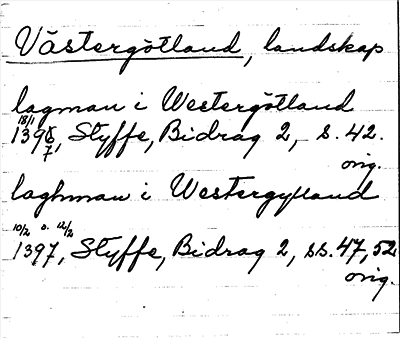 Västergötland, landskap
lagman i Westergötland
18/1
1396, Styffe, Bidrag 2, s. 42.
7
orig.
laghman i Westergytland
10/2 o. 12/2
1397, Styffe, Bidrag 2, ss. 47, 52
orig.